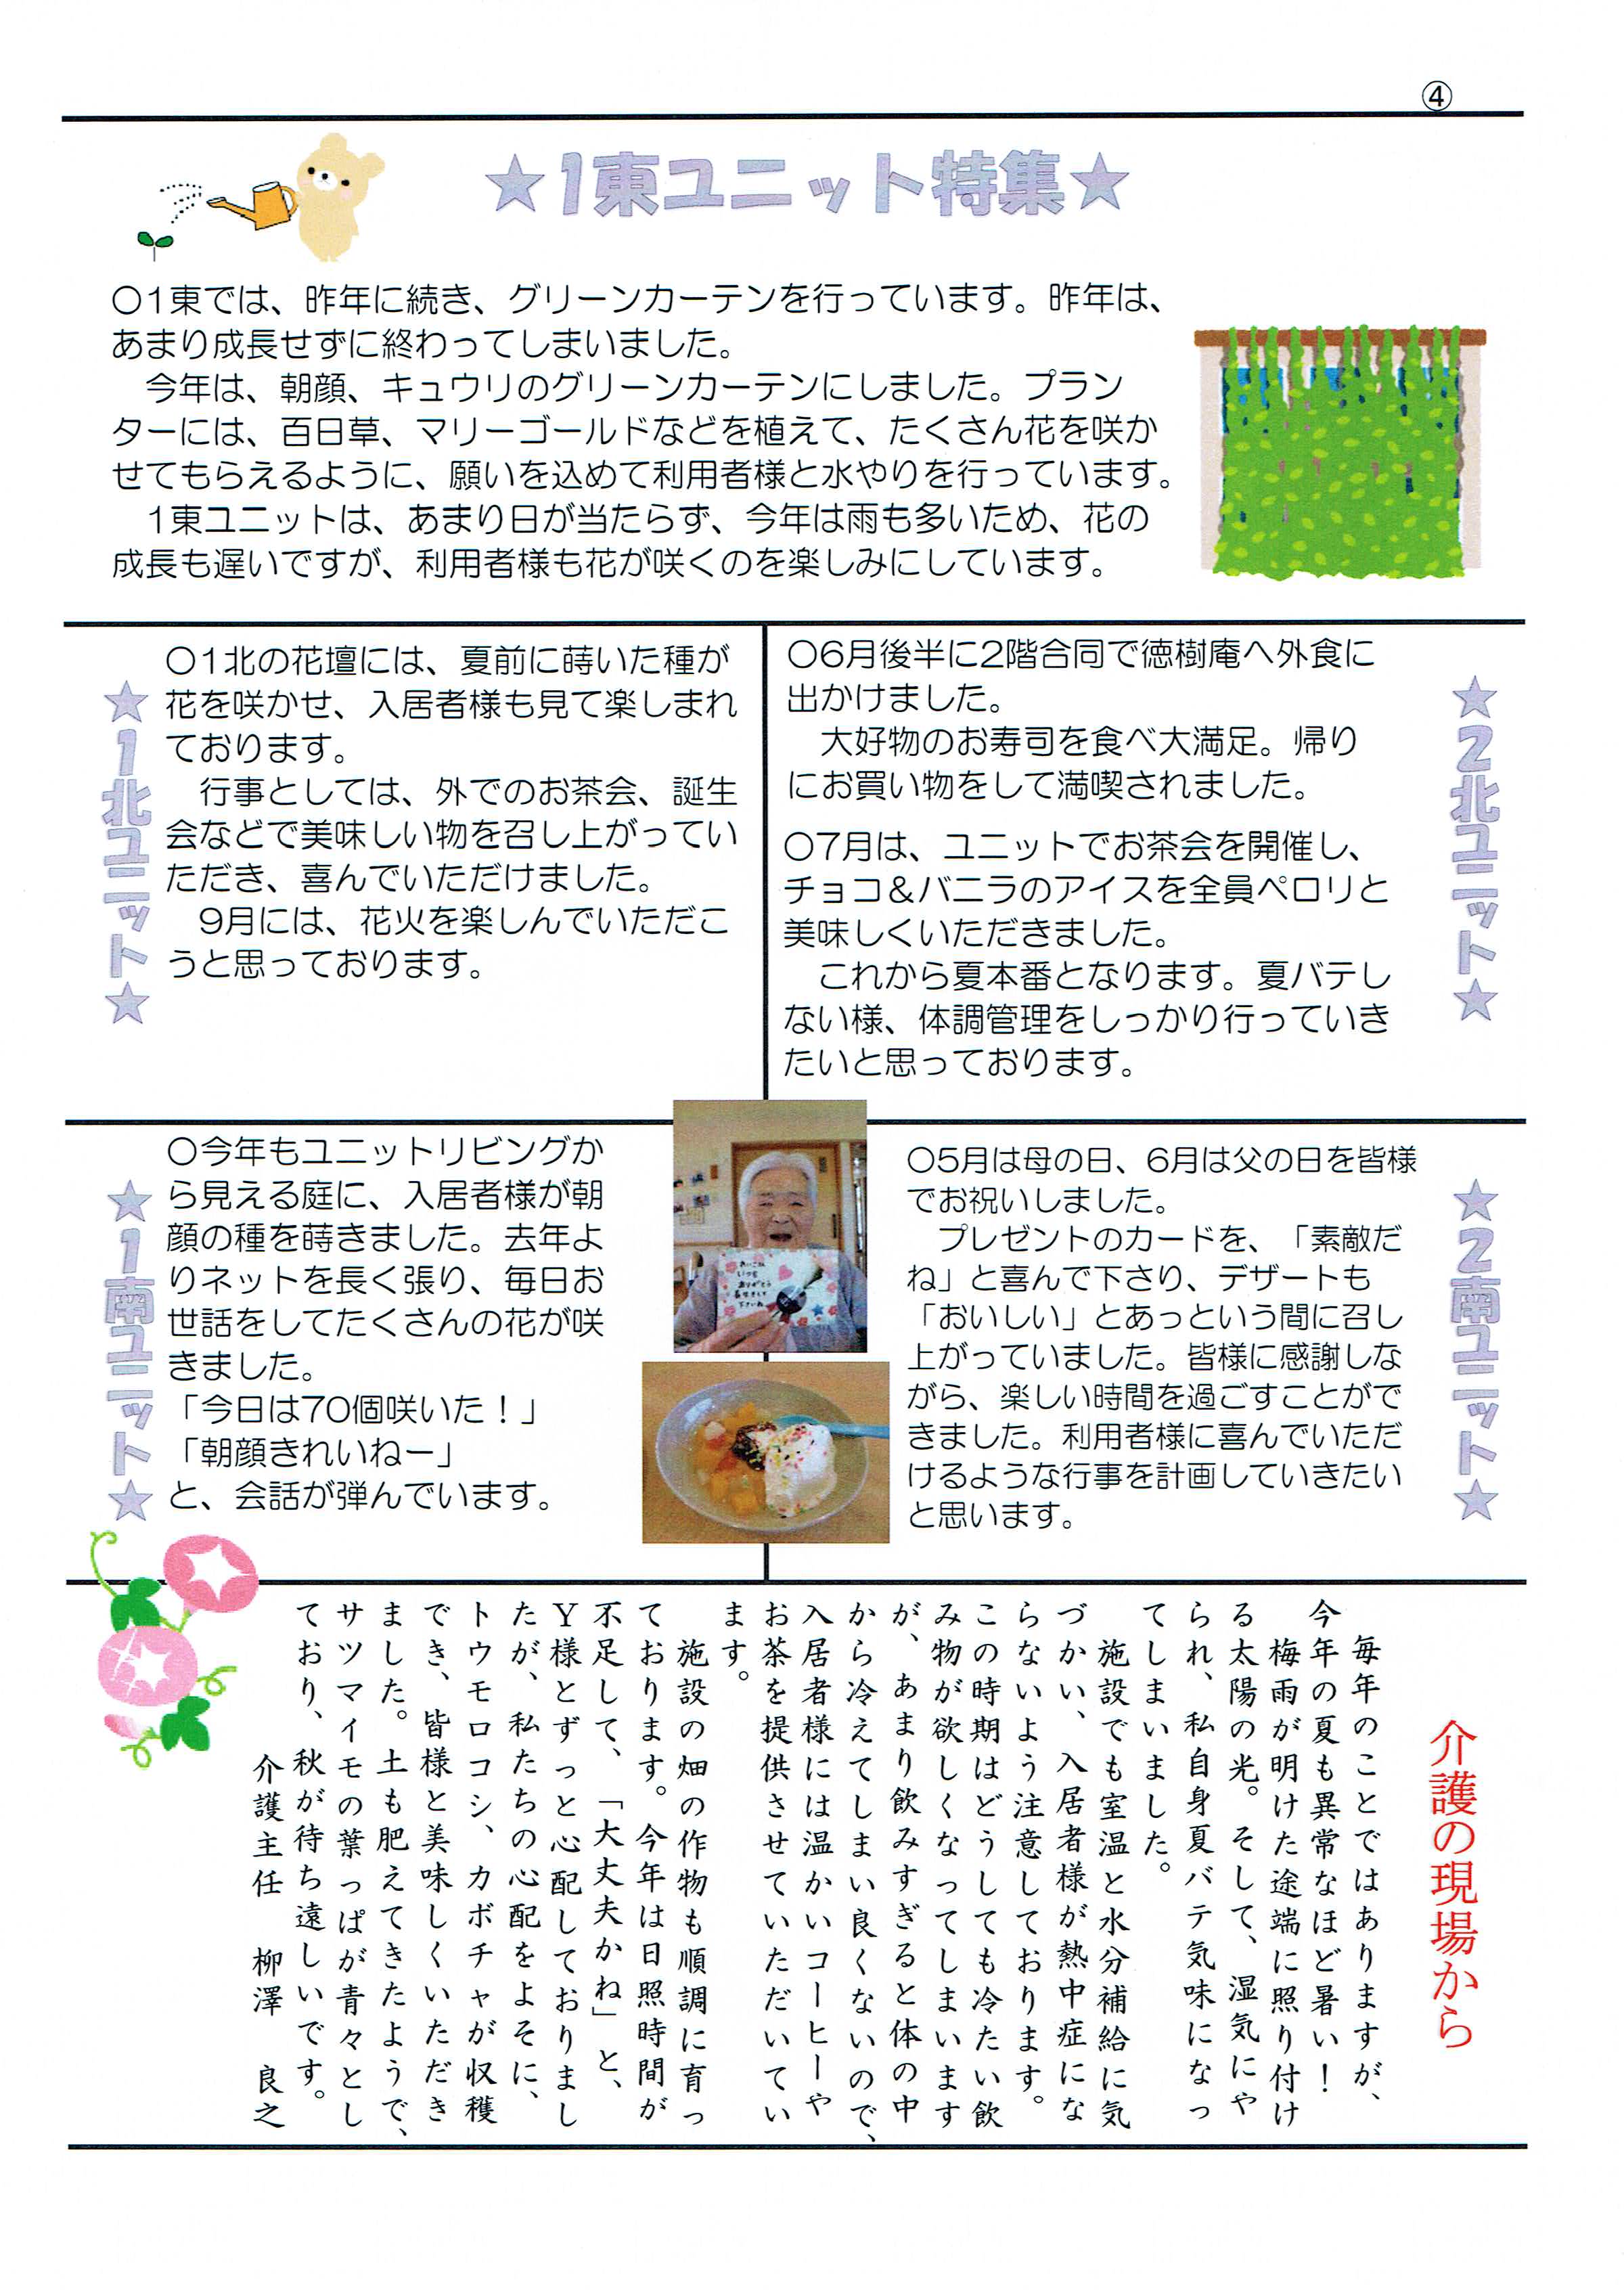 ④
★1東ユニット特集★
〇1東では、昨年に続き、グリーンカーテンを行っています。昨年は、
あまり成長せずに終わってしまいました。
　今年は、朝顔、キュウリのグリーンカーテンにしました。プラン
ターには、百日草、マリーゴールドなどを植えて、たくさん花を咲か
せてもらえるように、願いを込めて利用者様と水やりを行っています。
　1東ユニットは、あまり日が当たらず、今年は雨も多いため、花の
成長も遅いですが、利用者様も花が咲くのを楽しみにしています。
★1北ユニット★
〇1北の花壇には、夏前に蒔いた種が
花を咲かせ、入居者様も見て楽しまれ
ております。
　行事としては、外でのお茶会、誕生
会などで美味しい物を召し上がってい
ただき、喜んでいただけました。
　9月には、花火を楽しんでいただこ
うと思っております。
★2北ユニット★
〇6月後半に2階合同で徳樹庵へ外食に
出かけました。
　大好物のお寿司を食べ大満足。帰り
にお買い物をして満喫されました。
〇7月は、ユニットでお茶会を開催し、
チョコ＆バニラのアイスを全員ペロリと
美味しくいただきました。
　これから夏本番となります。夏バテし
ない様、体調管理をしっかり行っていき
たいと思っております。
★1南ユニット★
〇今年もユニットリビングか
ら見える庭に、入居者様が朝
顔の種を蒔きました。去年よ
りネットを長く張り、毎日お
世話をしてたくさんの花が咲
きました。
「今日は70個咲いた！」
「朝顔きれいねー」
と、会話が弾んでいます。
いつも
ありがとう
長生きして
下さいね
★2南ユニット★
〇5月は母の日、6月は父の日を皆様
でお祝いしました。
　プレゼントのカードを、「素敵だ
ね」と喜んで下さり、デザートも
「おいしい」とあっという間に召し
上がっていました。皆様に感謝しな
がら、楽しい時間を過ごすことがで
きました。利用者様に喜んでいただ
けるような行事を計画していきたい
と思います。
介護の現場から
　毎年のことではありますが、
今年の夏も異常なほど暑い！
　梅雨が明けた途端に照り付け
る太陽の光。そして、湿気にや
られ、私自身夏バテ気味になっ
てしまいました。
　施設でも室温と水分補給に気
づかい、入居者様が熱中症にな
らないよう注意しております。
この時期はどうしても冷たい飲
み物が欲しくなってしまいます
が、あまり飲みすぎると体の中
から冷えてしまい良くないので、
入居者様には温かいコーヒーや
お茶を提供させていただいてい
ます。
　施設の畑の作物も順調に育っ
ております。今年は日照時間が
不足して、「大丈夫かね」と、
Ｙ様とずっと心配しておりまし
たが、私たちの心配をよそに、
トウモロコシ、カボチャが収穫
でき、皆様と美味しくいただき
ました。土も肥えてきたようで、
サツマイモの葉っぱが青々とし
ており、秋が待ち遠しいです。
介護主任　柳澤　良之